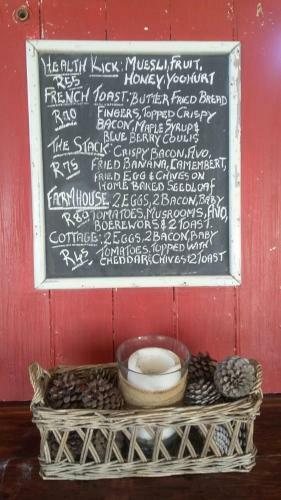 HEALTH KICK: MUESLI, FRUIT,
R55 HONEY, YOGHURT
FRENCH TOAST: BUTTER FRIED BREAD
R70 FINGERS, TOPPED CRISPY
BACON, MAPLE SYRUP &
BLUE BERRY COULIS
THE STACK: CRISPY BACON, AVO,
R75 FRIED BANANA, CAMEMBERT,
FRIED EGG & CHIVES ON
HOME BAKED SEEDLOAF
FARMHOUSE: 2 EGGS, 2 BACON, BABY
R80 TOMATOES, MUSROOMS, AVO,
BOEREWORS & 2 TOAST.
COTTAGE: 2 EGGS, 2 BACON, BABY
R45 TOMATOES, TOPPED WITH
CHEDDAR & CHIVES + 2 TOAST